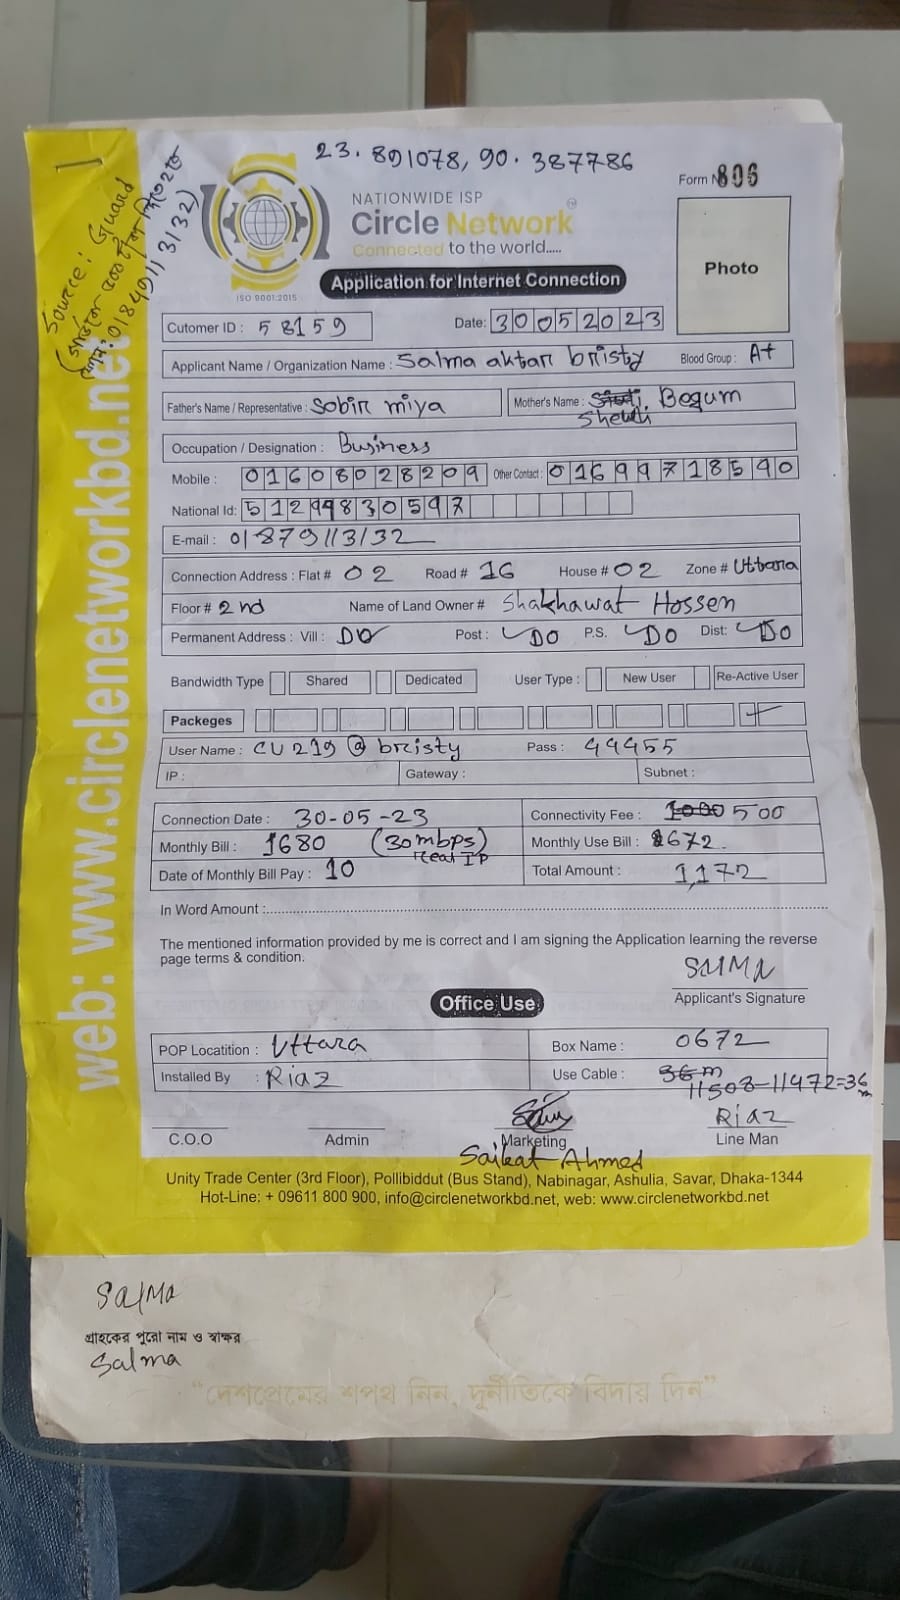 23.891078, 90.387786
Form N 806
NATIONWIDE ISP
Circle Network
Connected to the world.....
ISO 9001:2015
Application for Internet Connection
Photo
Source: Guard
web: www.circlenetworkbd.net
Cutomer ID : 58159
Date: 30052023
Applicant Name / Organization Name : Salma aktar bristy Blood Group : A+
Father's Name / Representative : Sobir miya Mother's Name : Begum
Occupation / Designation : Business
Mobile : 01608028209 Other Contact : 01699718590
National Id: 5129830597
E-mail : 01879113132
Connection Address : Flat # 02 Road # 16 House # 02 Zone # Uttara
Floor # 2nd Name of Land Owner # Shakhawat Hossen
Permanent Address : Vill : DO Post : DO P.S. DO Dist: DO
Bandwidth Type Shared Dedicated User Type : New User Re-Active User
Packeges
User Name : CU219@bristy Pass : 44455
IP : Gateway : Subnet :
Connection Date : 30-05-23 Connectivity Fee : 1000 500
Monthly Bill : 1680 (30mbps) Monthly Use Bill : 672
Real IP
Date of Monthly Bill Pay : 10 Total Amount : 1,172
In Word Amount :
The mentioned information provided by me is correct and I am signing the Application learning the reverse
page terms & condition.
SalMa
Applicant's Signature
Office Use
POP Locatition : Uttara Box Name : 0672
Installed By : Riaz Use Cable : 36m
11508-11472=36m
Riaz
C.O.O Admin Marketing Line Man
Saikat Ahmed
Unity Trade Center (3rd Floor), Pollibiddut (Bus Stand), Nabinagar, Ashulia, Savar, Dhaka-1344
Hot-Line: + 09611 800 900, info@circlenetworkbd.net, web: www.circlenetworkbd.net
SalMa
গ্রাহকের পুরো নাম ও স্বাক্ষর
Salma
“দেশপ্রেমের শপথ নিন, দুর্নীতিকে বিদায় দিন”